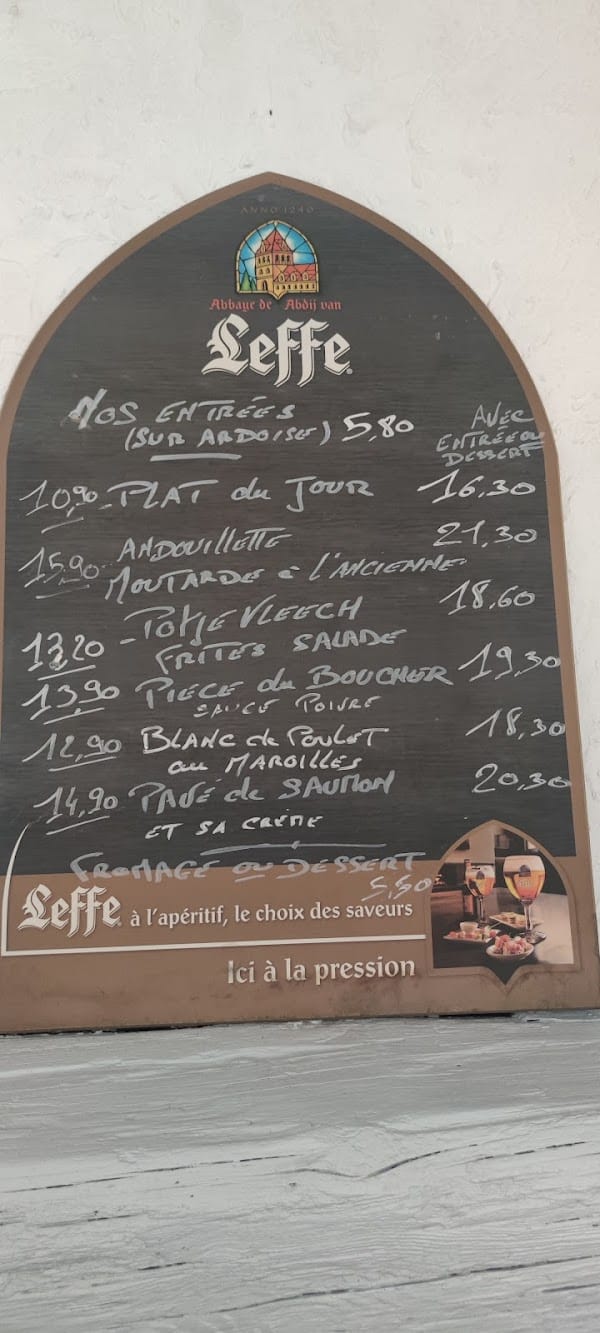 ANNO 1240
Abbaye de Abdij van
Leffe
NOS ENTRÉES
(SUR ARDOISE) 5,80
AVEC
ENTRÉE OU
DESSERT
10,90 - PLAT du JOUR 16.30
15,90 ANDOUILLETTE 21,30
MOUTARDE à L'ANCIENNE
13,20 - POTJE VLEECH 18.60
FRITES SALADE
13,90 PIECE du BOUCHER 19,30
SAUCE POIVRE
12,90 BLANC de POULET 18,30
au MAROILLES
14,90 PAVÉ de SAUMON 20,30
ET SA CRÈME
FROMAGE OU DESSERT
5,50
Leffe à l'apéritif, le choix des saveurs
Ici à la pression